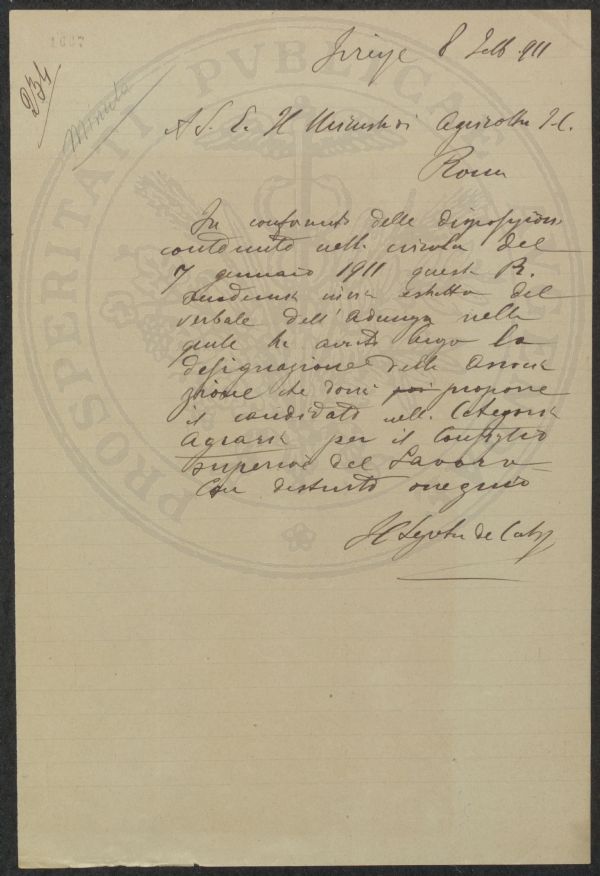 1007
234
Minuta
Firenze 8 Febb 911
A S. E. Il Ministro di Agricoltu I. C.
Roma
In conformità delle disposizioni
contenute nella circola del
7 gennaio 1911 questa R.
Accademia invia estratto del
verbale dell'Adunza nella
quale ha avuto luogo la
designazione della Associa
zione che dovrà poi proporre
il candidato nella Categoria
Agraria per il Consiglio
Superiore del Lavoro
Con distinto ossequio
Il Segretu de
PROSPERITATI PVBLICAE